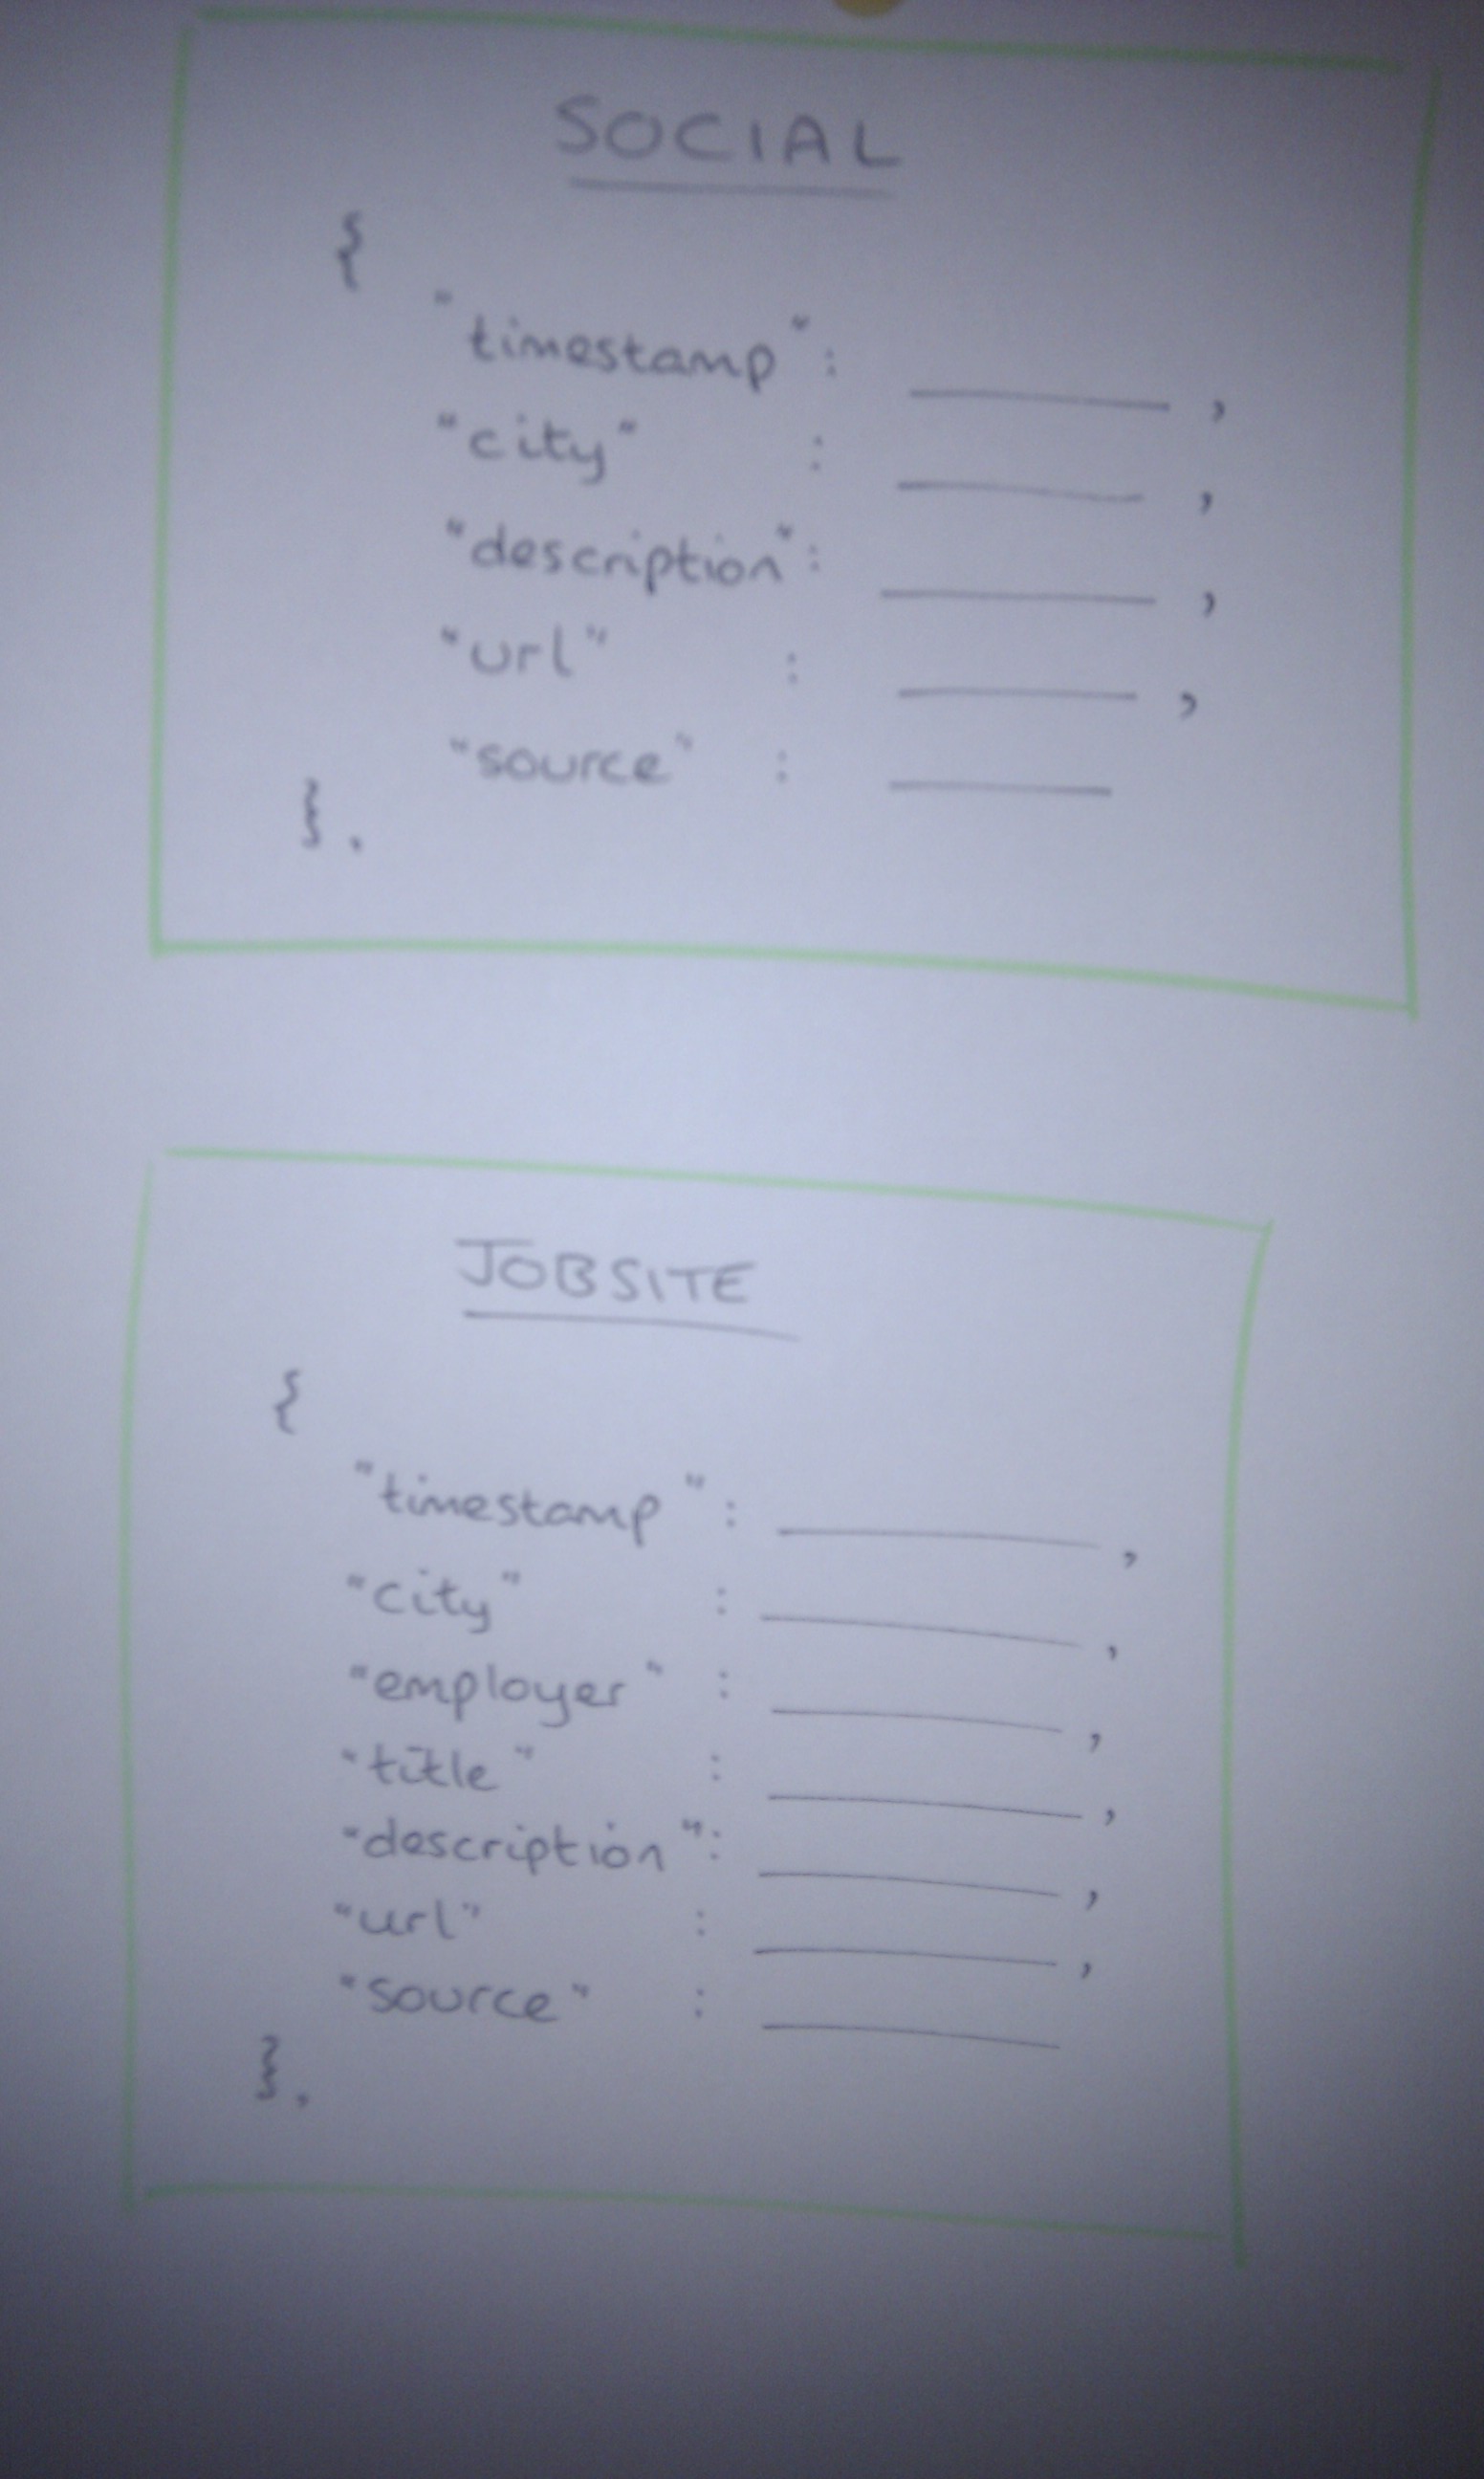 SOCIAL
{
"timestamp": ______,
"city" : ______,
"description": ______,
"url" : ______,
"source" : ______
}.
JOBSITE
{
"timestamp": ______,
"city" : ______,
"employer" : ______,
"title" : ______,
"description": ______,
"url" : ______,
"source" : ______
}.